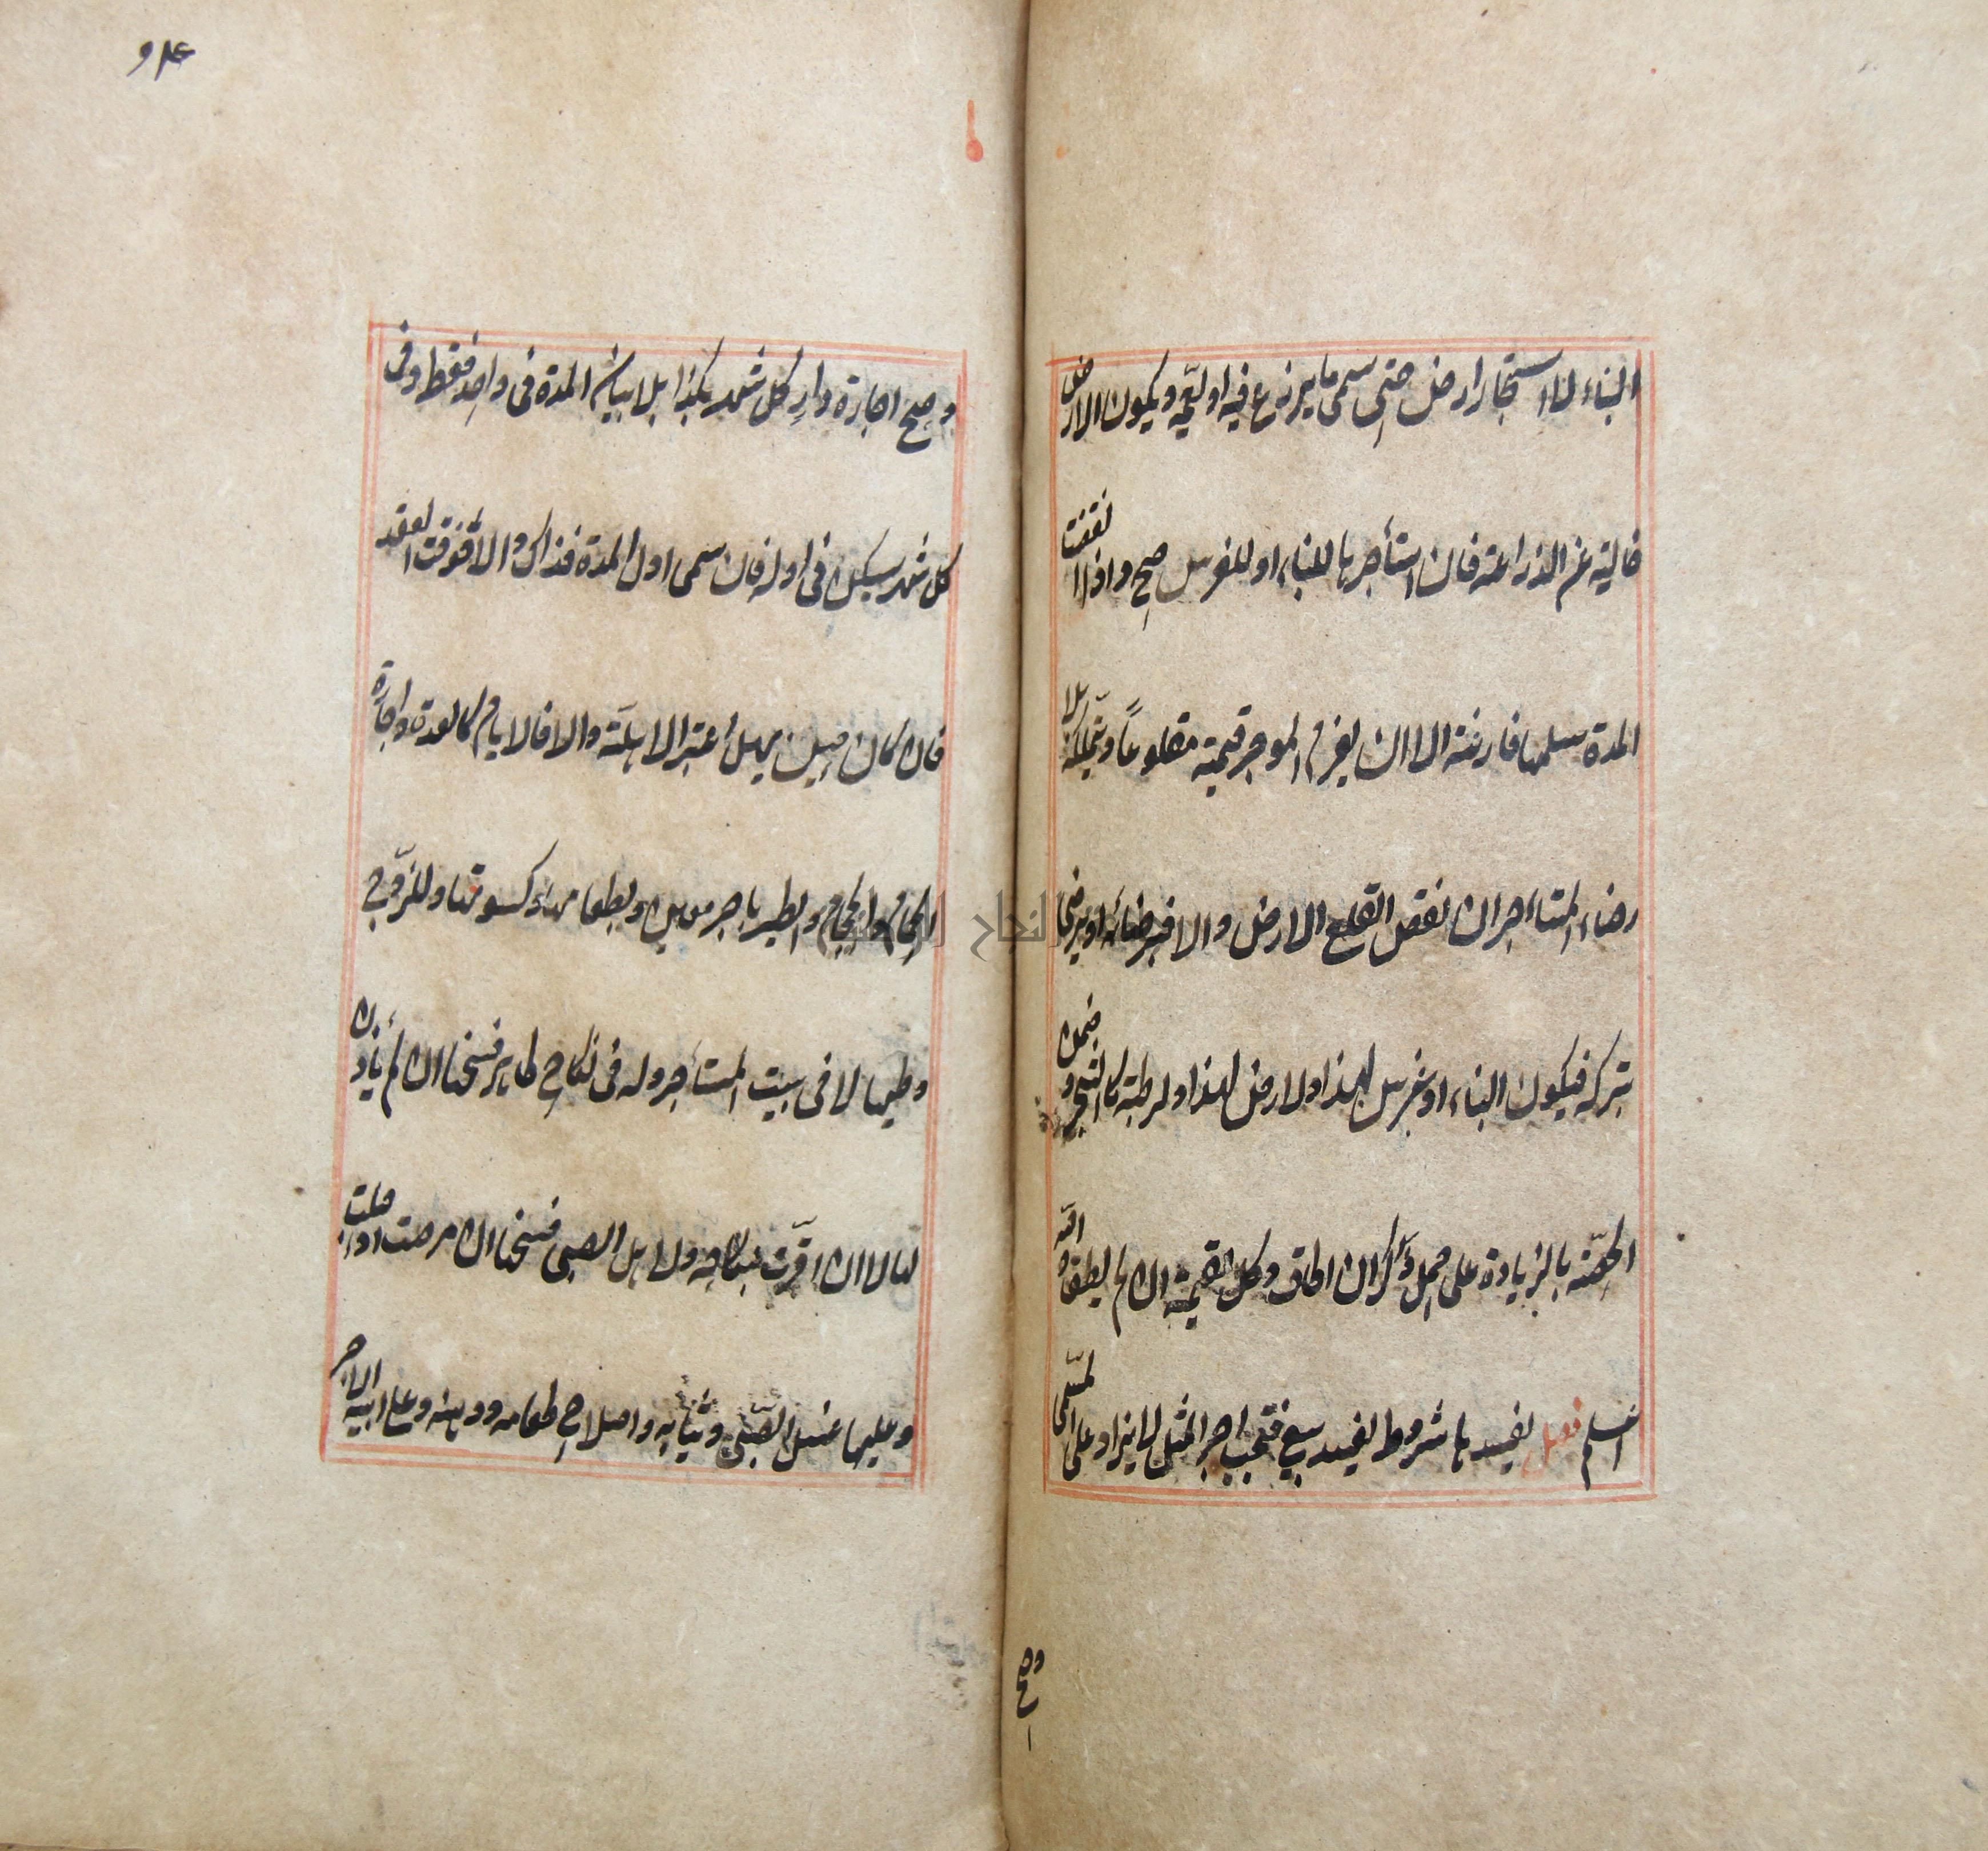 البناء لا استيجار ارض حتى سمى ما يزرع فيه او يعمم ويكون الارض
خالية عن الزراعة فان استأجرها للبناء او للغرس صح واذا انقضت
المدة سلمها فارغة الا ان يغرم الموجر قيمته مقلوعاً ويتملكه بلا
رضاء المستاءجر ان نقص القلع الارض والا فبرضائه او يرضى
بتركه فيكون البناء او غرس لهذا ولارض لهذا ولرطبة كالشجر وضمن
الحصّة بالزيادة على حمل ذكر ان اطاق وكل القيمة ان لم يطقه الله
اعلم فصل يفسدها شروط يفسد بيع فتجب اجر المثل لا يزاد على المسمّى
وصح
وصح اجارة دار كل شهر بكذا بلا بيان المدة فى واحد فقط وفى
كل شهر سكن فى اوله فان سمى اول المدة فذاك والا فوقت العقد
فان كان حين يهل اعتبر الاهلة والا فالايام كالعدة واجارة
الحمام والحجام والظير باجر معين وبطعامها وكسوتها وللزوج
وطيها لا فى بيت المستأجر وله فى نكاح ظاهر فسخها ان لم يأذن
لها لا ان اقرّت بنكاحه ولاهل الصبى فسخها ان مرضت او حبلت
وعليها غسل الصّبى وثيابه واصلاح طعامه ودهنه وعلى ابيه الاجر